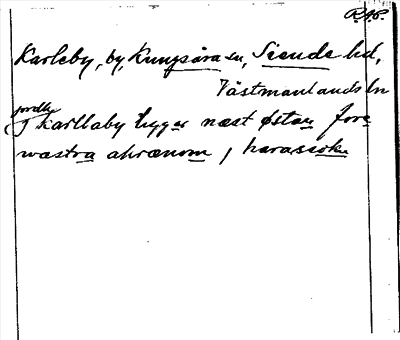 R.A.P.
Karleby, by, Kungsåra sn, Siende hd,
Västmanlands ln
jordh
J karllaby liggær næst østan fore
wæstra akrænom j haræssokn